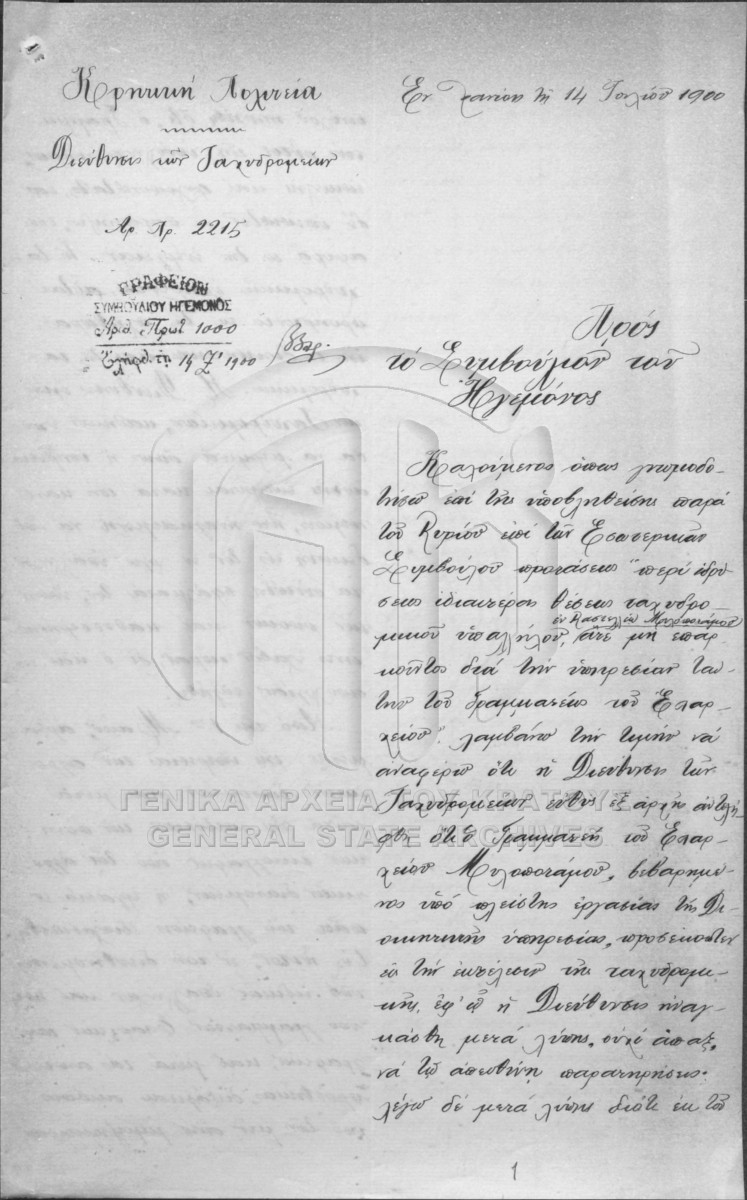 Κρητική Πολιτεία
Διεύθυνσις τῶν Ταχυδρομείων
Ἀρ. Πρ. 2215
ΓΡΑΦΕΙΟΝ
ΣΥΜΒΟΥΛΙΟΥ ΗΓΕΜΟΝΟΣ
Ἀριθ. Πρωτ 1000
Ἐλήφθη τῇ 14 7' 1900
Ἐν Χανίοις τῇ 14 Ἰουλίου 1900
Πρός
τό Συμβούλιον τοῦ
Ἡγεμόνος
Καλούμενος ὅπως γνωμοδο-
τήσω ἐπί τῆς ὑποβληθείσης παρά
τοῦ Κυρίου ἐπί τῶν Ἐσωτερικῶν
Συμβούλου προτάσεως "περί ἱδρύ-
σεως ἰδιαιτέρας θέσεως ταχυδρο-
ἐν Καστελλίῳ Μυλοποτάμου
μικοῦ ὑπαλλήλου, ἅτε μή ἐπαρ-
κοῦντος διά τήν ὑπηρεσίαν ταύ-
την τοῦ Γραμματέως τοῦ Ἐπαρ-
χείου" λαμβάνω τήν τιμήν νά
ἀναφέρω ὅτι ἡ Διεύθυνσις τῶν
Ταχυδρομείων εὐθύς ἐξ ἀρχῆς ἀντελή-
φθη ὅτι ὁ Γραμματεύς τοῦ Ἐπαρ-
χείου Μυλοποτάμου, βεβαρημέ-
νος ὑπό πλείστης ἐργασίας τῆς Δι-
οικητικῆς ὑπηρεσίας, προσέκοπτεν
εἰς τήν ἐκτέλεσιν τῆς ταχυδρομι-
κῆς, ἐφ' ᾧ ἡ Διεύθυνσις ἠναγ-
κάσθη μετά λύπης, οὐχί ἅπαξ,
νά τῷ ἀπευθύνῃ παρατηρήσεις·
λέγω δέ μετά λύπης διότι ἐκ τοῦ
1
ΓΕΝΙΚΑ ΑΡΧΕΙΑ ΤΟΥ ΚΡΑΤΟΥΣ
GENERAL STATE ARCHIVES